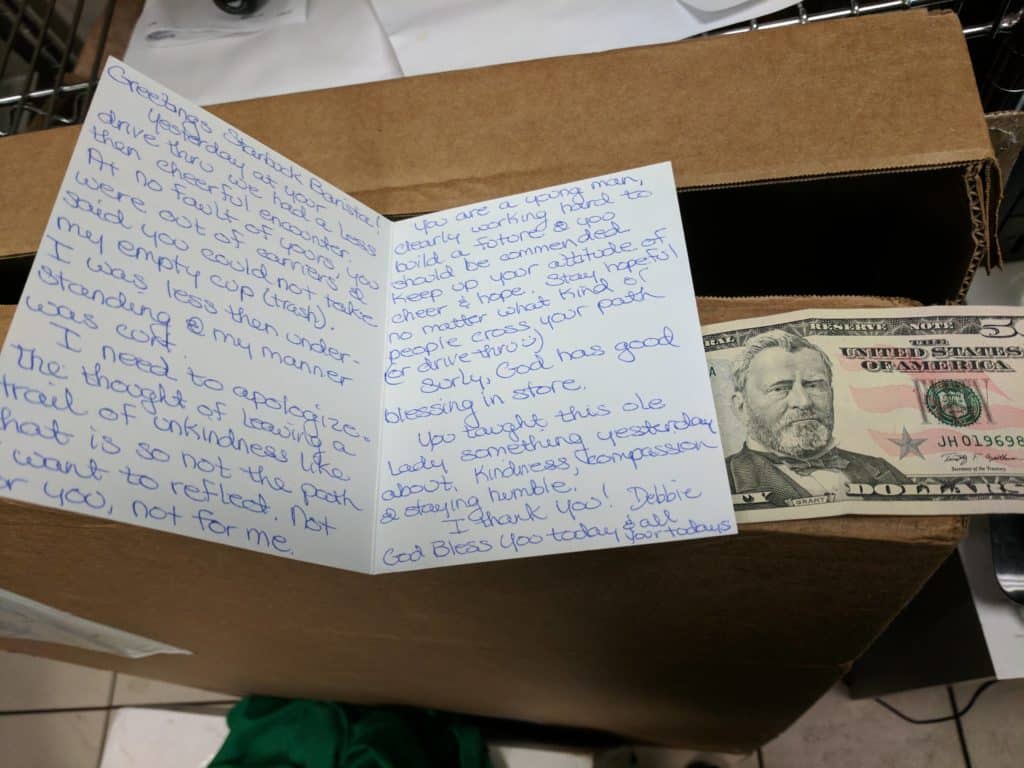 Greetings Starbock Barista!
Yesterday at your
drive thru we had a less
then cheerful encounter.
At no fault of yours, you
were out of carriers &
said you could not take
my empty cup (trash).
I was less then under-
standing @ my manner
was curt.
I need to apologize.
The thought of leaving a
trail of unkindness like
that is so not the path
I want to reflect. Not
for you, not for me.
You are a young man,
clearly working hard to
build a future & you
should be commended
Keep up your attitude of
cheer & hope. Stay hopeful
no matter what kind of
people cross your path
(or drive thru :)
Surly, God has good
blessing in store.
You taught this ole
lady something yesterday
about, kindness, compassion
& staying humble.
I thank you! Debbie
God Bless you today & all
your todays
RESERVE NOTE
THE
UNITED STATES
OF AMERICA
JH019698
Secretary of the Treasury.
GRANT
DOLLARS